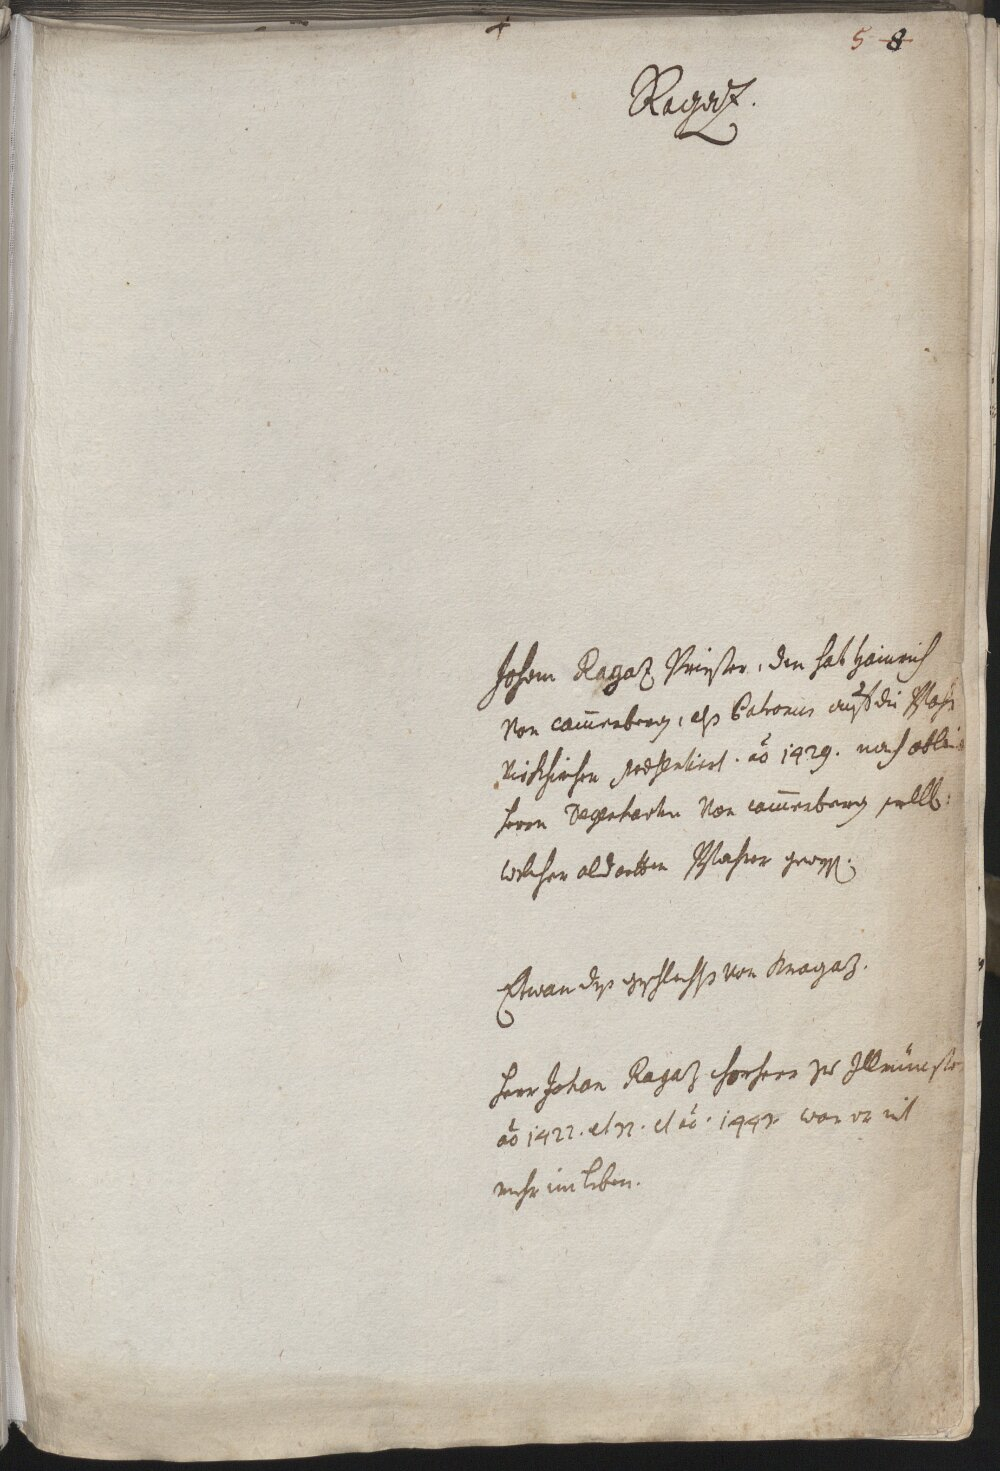 5 8
Ragaz.
Johann Ragaz Priester, den hat Hainrich
von Camerberg, alß Patronus auf die Pfarr
Viechkirchen praesentiert. aō 1429. nach ableib
herrn Degenharten von Camerberg
welcher alda Pfarrer gewest.
Etwan diß geschlechts von Kragaz.
Herr Johan Ragaz Chorherr zu Illmünster
aō 1422. et 32. et aō. 1442 war er nit
mehr im Leben.